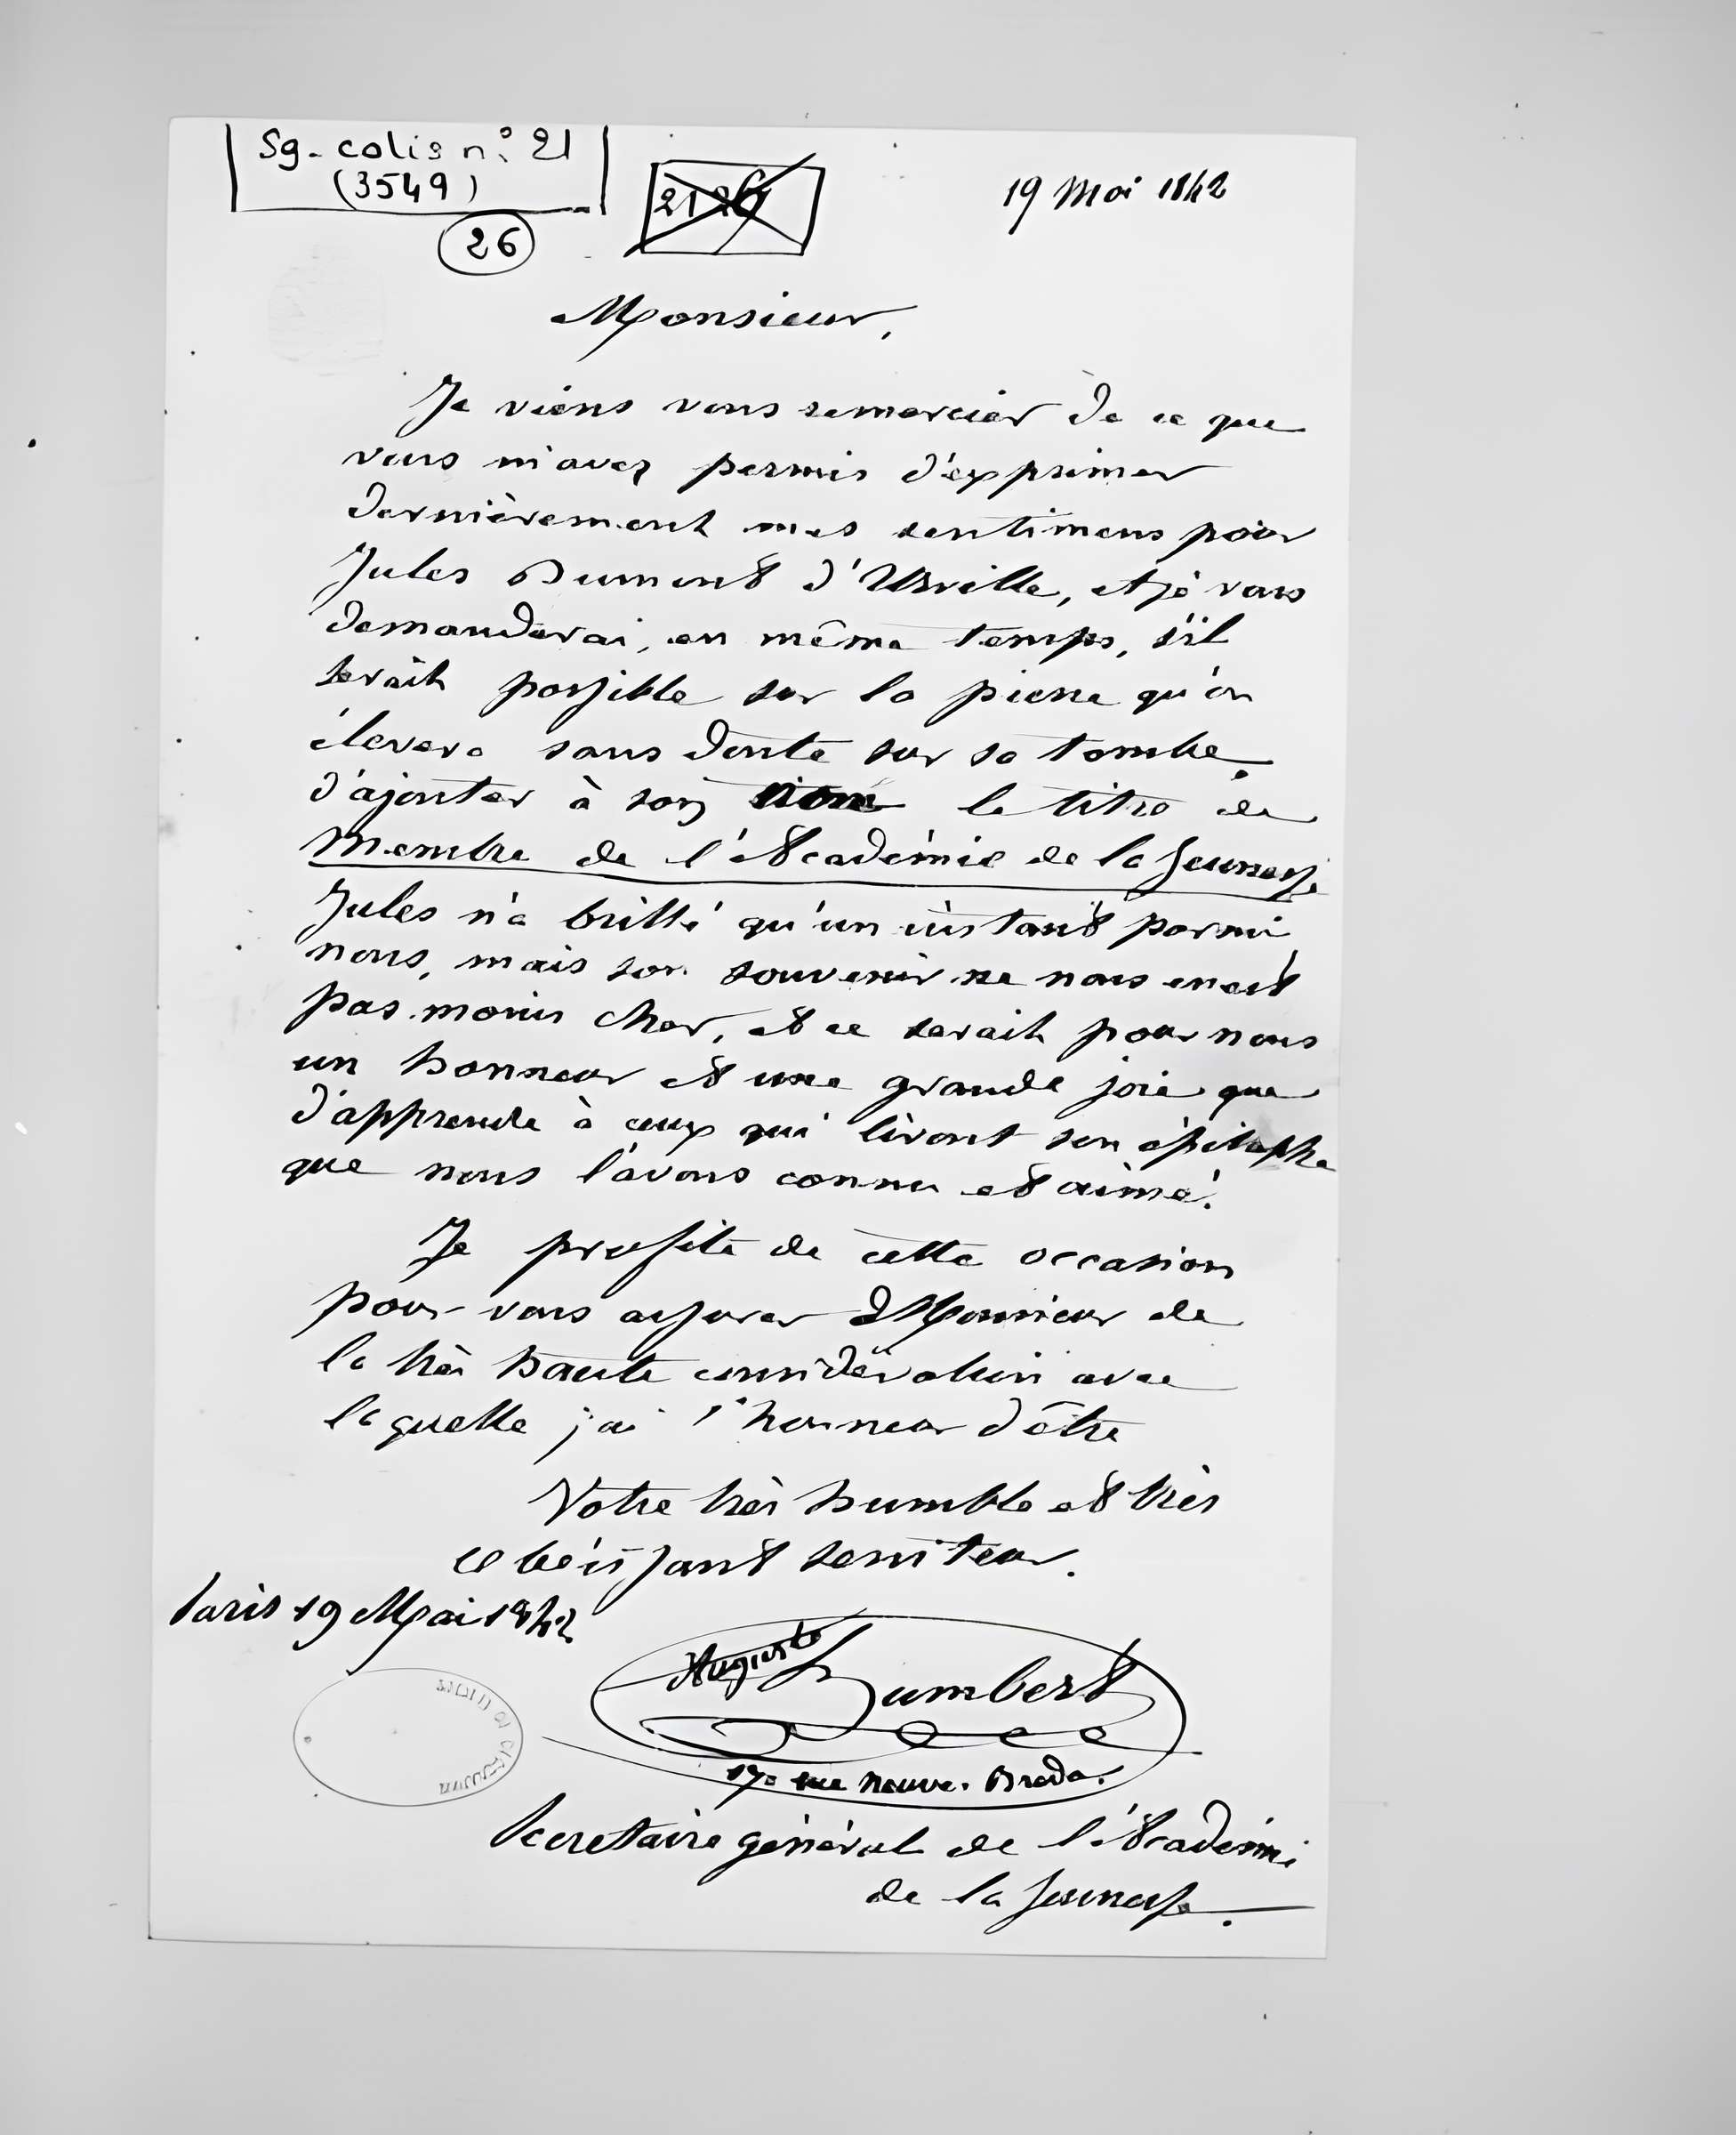 Sg. colis n° 21
(3549)
26
2126
19 Mai 1842
Monsieur,
Je viens vous remercier de ce que
vous m'avez permis d'exprimer
dernièrement mes sentimens pour
Jules Dumont d'Urville, et je vous
demanderai, en même temps, s'il
serait possible sur la pierre qu'on
élevera sans doute sur sa tombe,
d'ajouter à son nom le titre de
Membre de l'Académie de la Jeunesse
Jules n'a brillé qu'un instant parmi
nous, mais son souvenir ne nous en est
pas moins cher, et ce serait pour nous
un honneur et une grande joie que
d'apprendre à ceux qui liront son épitaphe
que nous l'avons connu et aimé.
Je profite de cette occasion
pour vous assurer Monsieur de
la très haute considération avec
laquelle j'ai l'honneur d'être
Votre très humble et très
obéissant serviteur.
Paris 19 Mai 1842
Auguste Humbert
17 rue Neuve. Breda.
Secretaire général de l'Académie
de la Jeunesse.